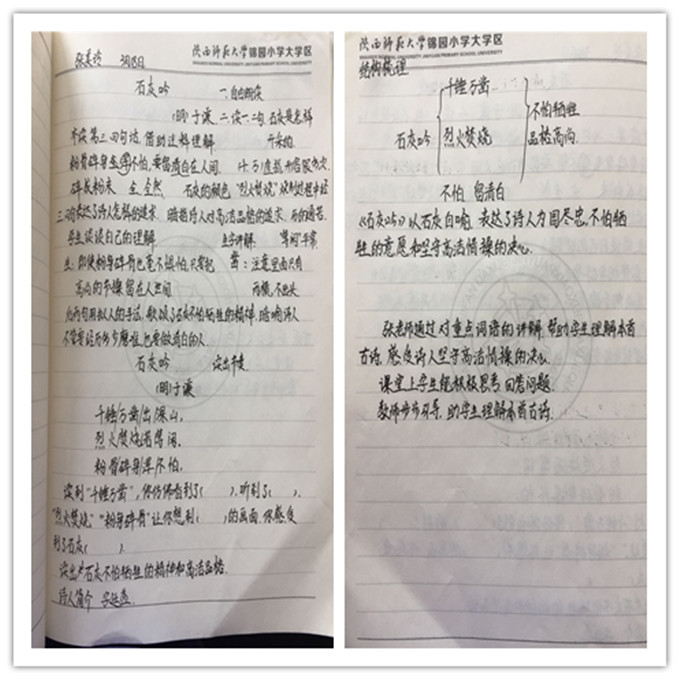 陕西师范大学锦园小学大学区
SHAANXI NORMAL UNIVERSITY JINYUAN PRIMARY SCHOOL UNIVERSITY
3月18日
石灰吟 一、自由朗读
(明)于谦 二、读一、二句,石灰是怎样
齐读第三、四句话,借助注释理解. 开采的
粉骨碎身浑不怕,要留清白在人间.
碎成粉末 全、全然 石灰的颜色 "烈火焚烧"
三、四句表达了诗人怎样的追求. 暗指诗人对高洁品格的追求
学生谈谈自己的理解. 生字讲解. "等闲"平常
生:即使粉身碎骨也毫不惧怕,只要把 凿:注意里面只有
高尚的节操留在人世间 两横,不出头
此两句用拟人的手法,歌颂了石灰不怕牺牲的精神,暗喻诗人
不管要经历多少磨难,也要做清白的人.
石灰吟 读出节奏
(明)于谦
千锤/万凿/出/深山,
烈火/焚烧/若等闲,
粉骨/碎身/浑/不怕,
读到"千锤万凿",你仿佛看到了( ),听到了( ).
"烈火焚烧""粉身碎骨"让你想到( )的画面.你感受
到了石灰( ).
读出石灰不怕牺牲的精神和高洁品格
诗人简介
陕西师范大学锦园小学大学区
SHAANXI NORMAL UNIVERSITY JINYUAN PRIMARY SCHOOL UNIVERSITY
结构梳理
千锤万凿
石灰吟 烈火焚烧 不怕牺牲
品格高尚.
不怕 留清白
《石灰吟》以石灰自喻,表达了诗人为国尽忠,不怕牺
牲的意愿和坚守高洁情操的决心.
张老师通过对重点词语的讲解,帮助学生理解本首
古诗,感受诗人坚守高洁情操的决心.
课堂上学生能积极思考,回答问题.
教师步步引导,助学生理解本首古诗.